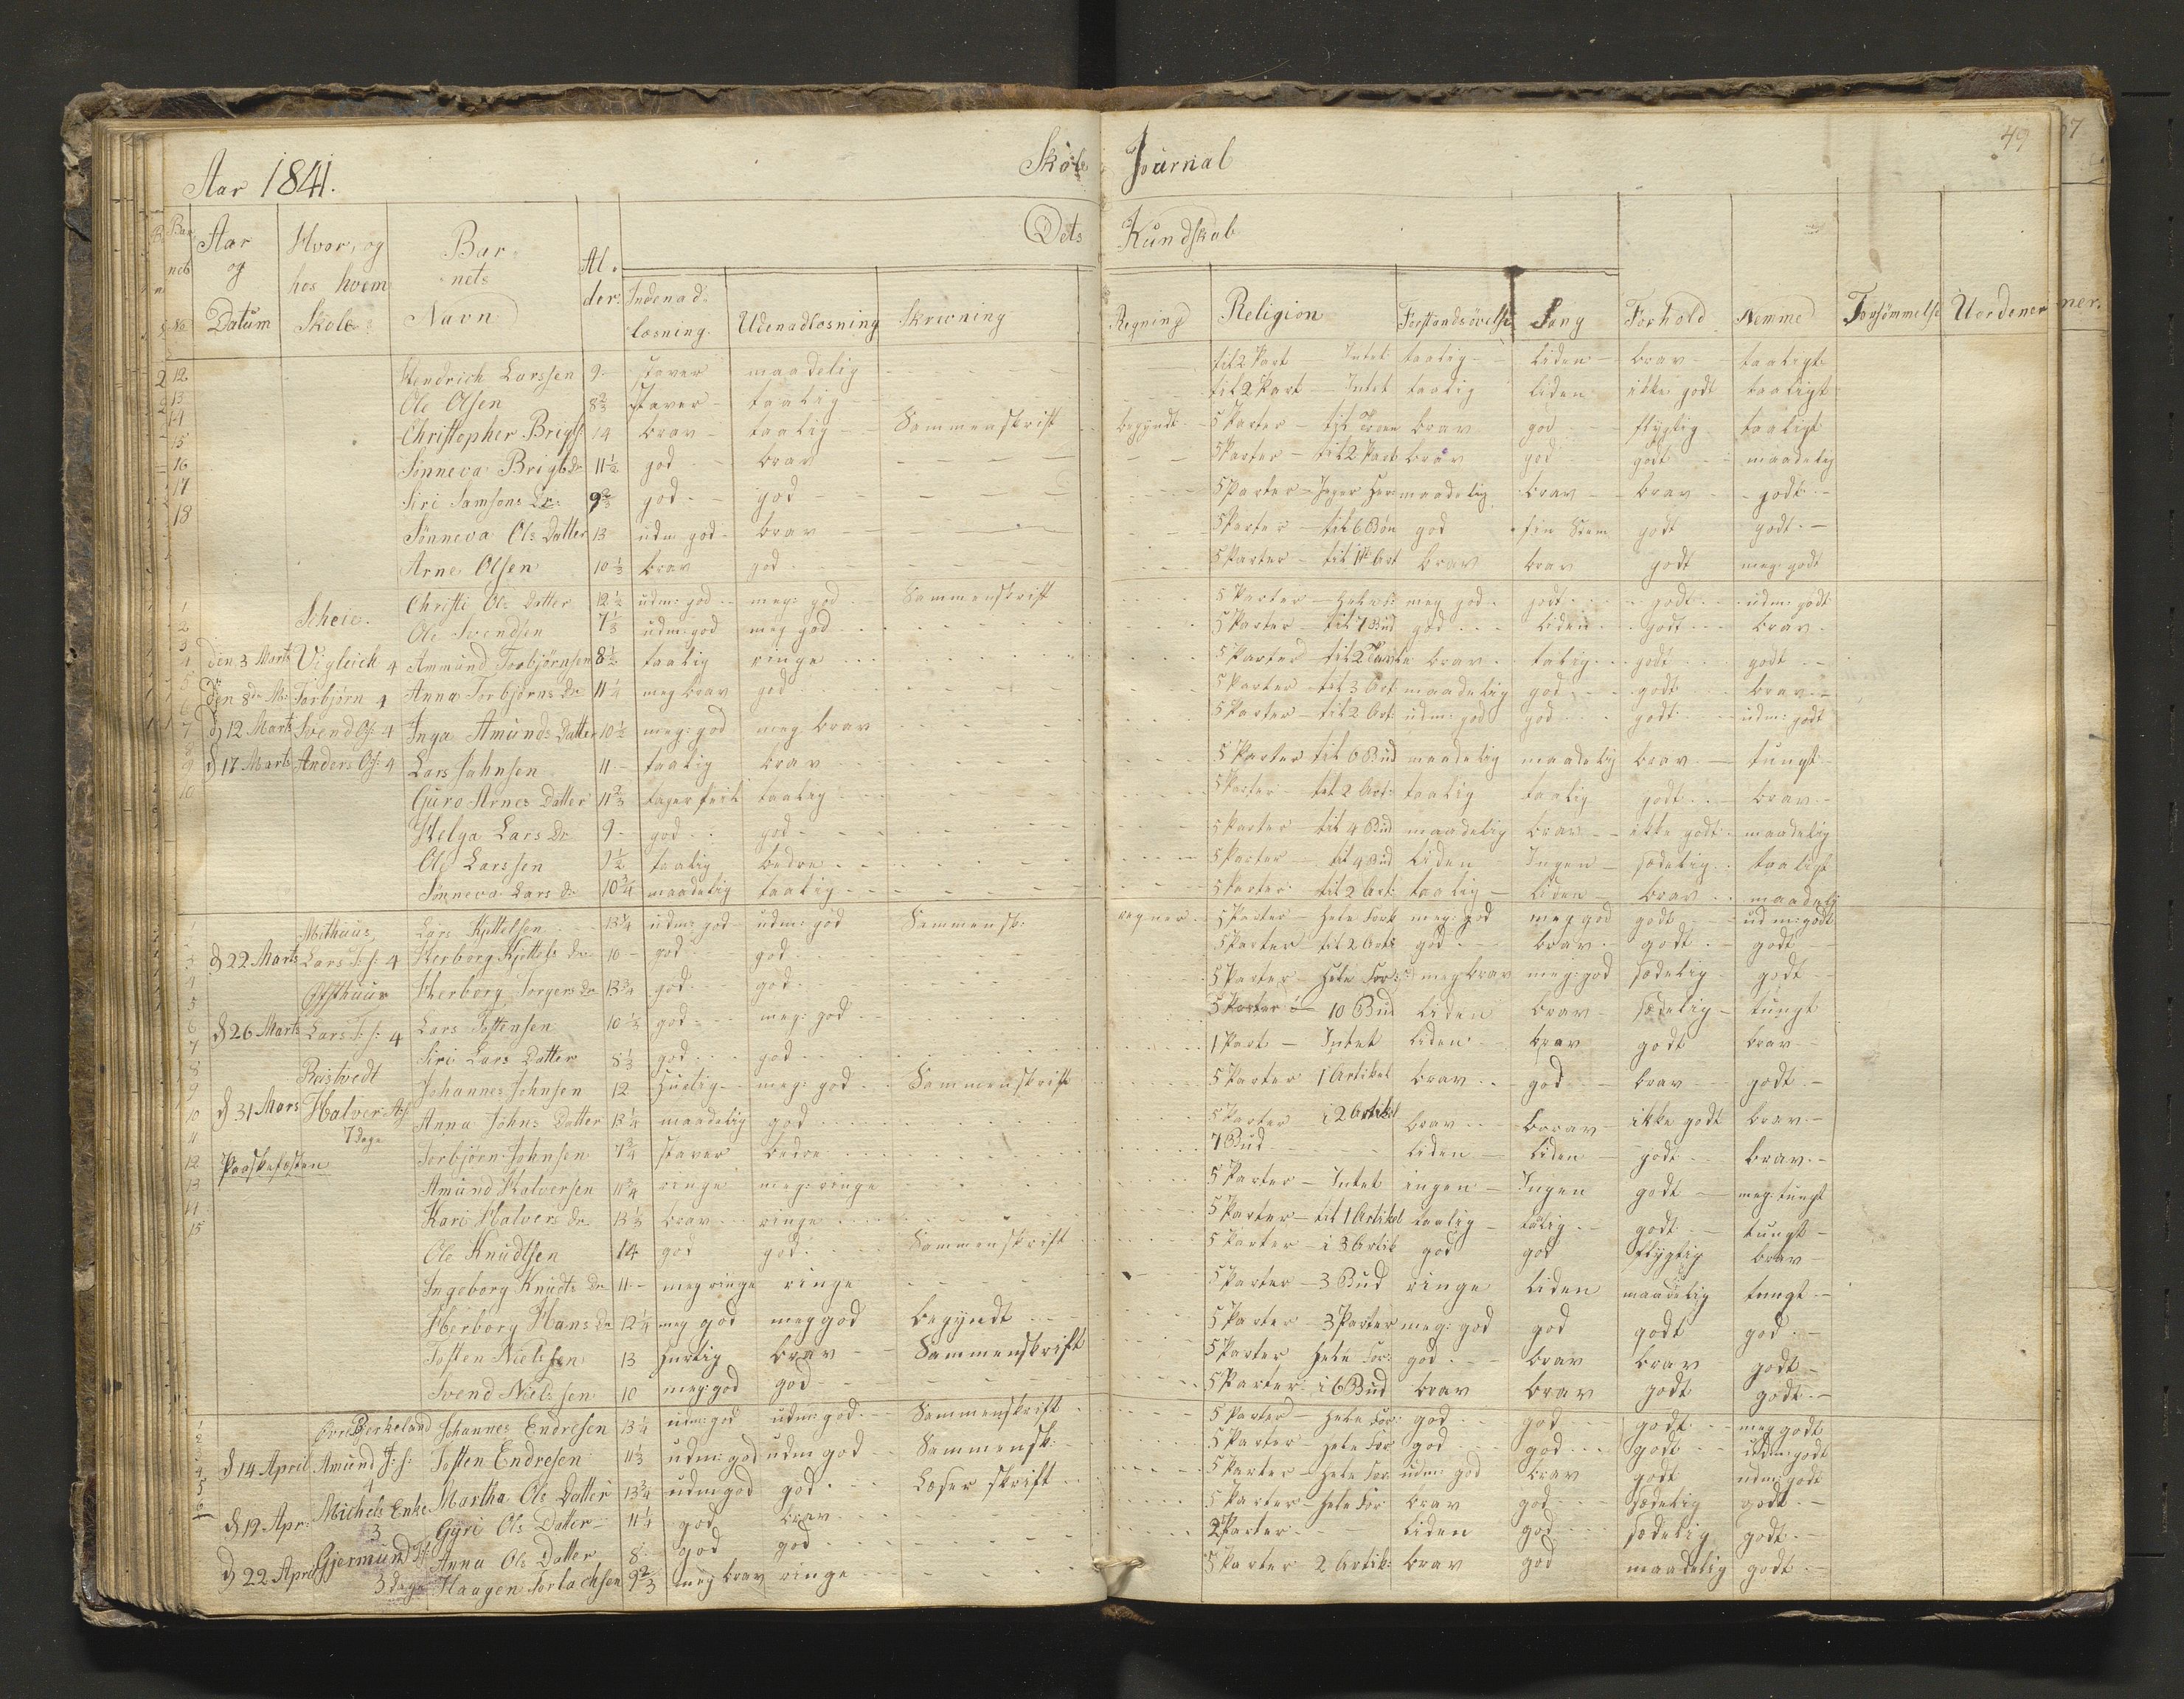 49
67
Aar 1841.
Skole Journal
Barnets No
Aar og Datum
Hvor, og hos hvem Skole
Barnets Navn
Alder
Dets Kundskab
Indenadlæsning
Udenadlæsning
Skrivning
Regning
Religion
Forstandsøvelse
Sang
Forhold
Nemme
Forsømmelse
Uordener
ner.
12 Hendrich Larssen 9 staver maadelig til 2 Part Intet taalig liden brav taaligt
13 Ole Olsen 8 2/3 staver taalig til 2 Part Intet taalig liden ikke godt taaligt
14 Christopher Brigts: 14 brav taalig Sammenskrift begyndt 5 Parter til Troen brav god flygtig taaligt
15 Sønneva Brigts Dr 11 1/2 god brav 5 Parter til 2 Part brav god godt maadelig
16 Siri Samsons Dr: 9 2/3 god god 5 Parter maadelig brav brav godt
17 Sønneva Ols Datter 13 udm: god brav 5 Parter til 6 Bøn god fin Stem godt godt
18 Arne Olsen 10 1/3 brav god 5 Parter til 1te Art brav brav godt meg: godt
Scheie.
1 Christi Ols Datter 12 1/2 udm: god meg: god Sammenskrift 5 Parter meg god godt godt udm: godt
2 Ole Svendsen 7 1/3 udm: god meg god 5 Parter til 7 Bud god liden godt brav
3 den 3 Marts Vigleich 4 Ammund Torbjørnsen 8 1/2 taalig ringe 5 Parter brav talig godt godt
4 den 8de M: Torbjørn 4 Anna Torbjørns Dr 11 1/4 meg brav god 5 Parter til 3 Art maadelig god godt brav
5 d 12 Marts Svend Ols: 4 Inga Amunds Datter 10 1/2 meg: god meg brav 5 Parter til 2 Art: udm: god god godt udm: godt
6 d 17 Marts Anders Ols: 4 Lars Johnsen 11 taalig brav 5 Parter til 6 Bud maadelig maadelig brav tungt
7 Guro Arnes Datter 11 2/3 tager feil taalig 5 Parter til 2 Art: taalig taalig godt brav
8 Helga Lars Dr 9 god god 5 Parter til 4 Bud maadelig brav ikke godt maadelig
9 Ole Larssen 9 1/2 taalig bedre 5 Parter til 4 Bud liden Ingen sædelig taaligt
10 Sønneva Lars Dr 10 3/4 maadelig taalig 5 Parter til 2 Art: taalig liden brav maadelig
Mithuus
1 Lars Kjittelsen 13 1/4 udm: god udm: god Sammensk: regner 5 Parter Hele Fork meg: god meg god godt udm: godt
2 d 22 Marts Lars T: s: 4 Herborg Kjittels Dr 10 god god 5 Parter til 2 Art: god brav godt godt
Østhuus
3 Herborg Torgers Dr 13 3/4 god god 5 Parter Hele For: meg brav meg: god sædelig godt
4 d 26 Marts Lars T: s: 4 Lars Tostensen 10 1/2 god meg: god 5 Parter 10 Bud liden brav sædelig tungt
5 Siri Lars Datter 8 1/3 god god 1 Part Intet liden brav godt brav
Reistvedt
6 Johannes Johnsen 12 Hurtig meg: god Sammenskrift 5 Parter 1 Artikel brav god brav godt
7 d 31 Mars Halver As: 7 dage Anna Johns Datter 13 1/4 maadelig god 5 Parter i 2 Artikel brav brav ikke godt brav
8 Paaskefæsten Torbjørn Johnsen 7 3/4 staver bedre 7 Bud liden liden godt brav
9 Amund Halversen 11 3/4 ringe meg: ringe 5 Parter Intet ingen Ingen godt meg: tungt
10 Kari Halvers Dr 13 1/3 brav ringe 5 Parter til 1 Artikel taalig talig godt tungt
11 Ole Knudtsen 14 god god Sammenskrift 5 Parter i 3 Artik god god flygtig brav
12 Ingeborg Knudts Dr 11 meg ringe ringe 5 Parter 3 Bud ringe liden maadelig tungt
13 Herborg Hans Dr 12 1/4 meg god meg god begyndt 5 Parter 3 Parter meg: god god godt god
14 Tosten Nielssen 13 Hurtig brav Sammenskrift 5 Parter Hele For: god brav brav godt
15 Svend Nielssen 10 meg: god god 5 Parter i 6 Bud brav brav godt godt
Øvre Berkeland
1 Johannes Endresen 13 1/4 udm: god udm: god Sammenskrift 5 Parter Hele For: god god godt meg godt
2 d 14 April Amund J: s: 4 Tosten Endresen 11 1/3 udm: god udm god Sammensk: 5 Parter Hele For god god godt udm: godt
3 Martha Ols Datter 13 3/4 udm god god Læser skrift 5 Parter Hele For udm: god brav godt udm: godt
4 d 19 Apr: Michels Enke 3 Gyri Ols Datter 11 1/4 god brav 5 Parter Hele For brav god sædelig godt
5 Anna Ols Datter 8 god god 2 Parter liden god sædelig godt
6 d 22 April Gjermund 3 dage Haagen Torlachsen 9 2/3 meg brav ringe 5 Parter 2 Artik: brav god maadelig godt